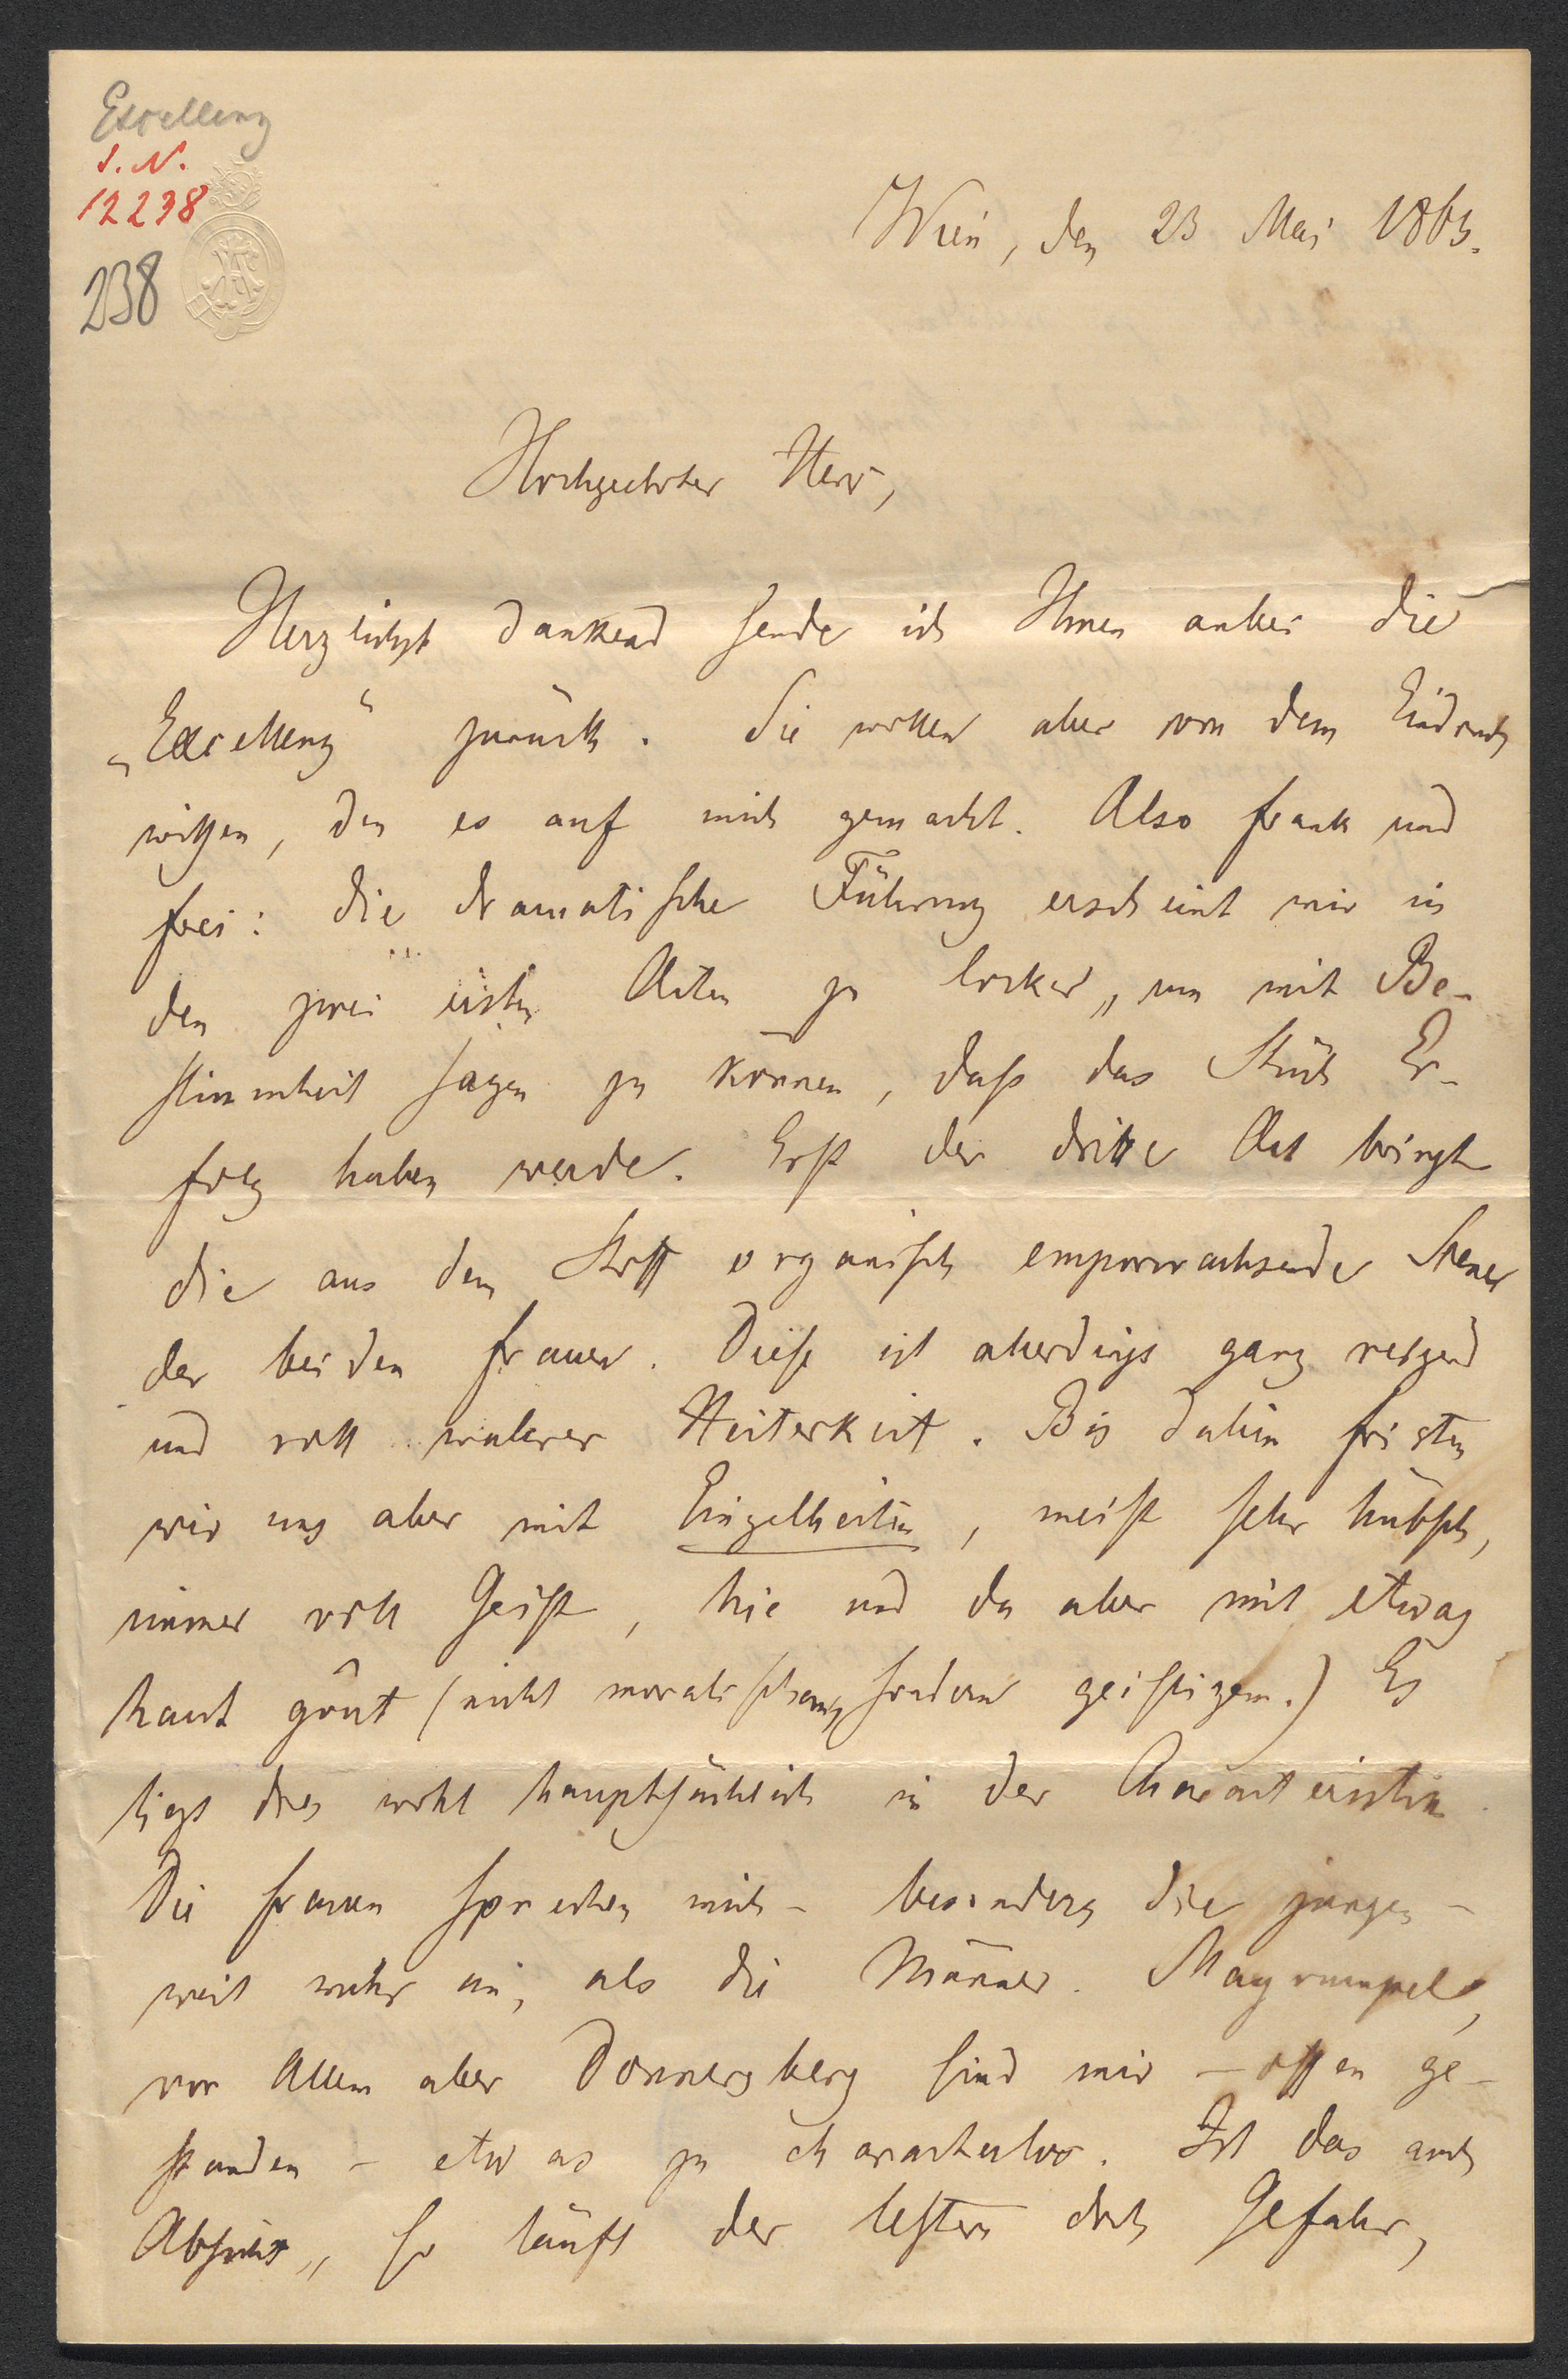 Excellenz
I. N.
12238
238
Wien, den 23 Mai 1863.
Hochgeehrter Herr,
Herzlichst dankend sende ich Ihnen anbei die
„Excellenz“ zurück. Sie wollen aber von dem Eindruck
wissen, den es auf mich gemacht. Also frank und
frei: die dramatische Führung erscheint mir in
den zwei ersten Akten zu locker, um mit Be-
stimmtheit sagen zu können, daß das Stück Er-
folg haben werde. Erst der dritte Akt bringt
die aus dem Stoff organisch emporwachsende Scene
der beiden Frauen. Diese ist allerdings ganz reizend
und voll wahrer Heiterkeit. Bis dahin fristen
wir uns aber mit Einzelheiten, meist sehr hübsch,
immer voll Geist, hie und da aber mit etwas
haut goût (nicht moralischem, sondern geistigem.) Es
liegt dies wohl hauptsächlich in der Charakteristik.
Die Frauen sprechen mich – besonders die jungen –
weit mehr an, als die Männer. Mayrumpel,
vor Allem aber Donnersberg sind mir – offen ge-
standen – etwas zu charakterlos. Ist das auch
Absicht, so läuft der letztere doch Gefahr,